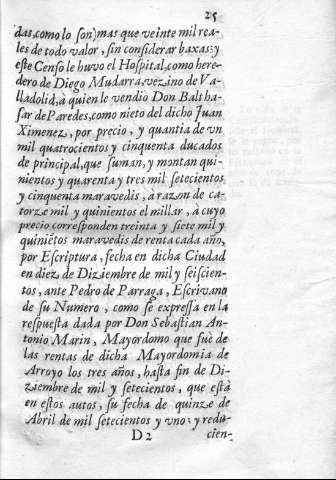 25
das, como lo son) mas que veinte mil rea-
les de todo valor, sin considerar baxas: y
este Censo le huvo el Hospital, como here-
dero de Diego Mudarra, vezino de Va-
lladolid, à quien le vendio Don Baltha-
sar de Paredes, como nieto del dicho Juan
Ximenez, por precio, y quantia de vn
mil quatrocientos y cinquenta ducados
de principal, que suman, y montan qui-
nientos y quarenta y tres mil setecientos
y cinquenta maravedis, à razon de ca-
torze mil y quinientos el millar, à cuyo
precio corresponden treinta y siete mil y
quiniẽtos maravedis de renta cada año,
por Escriptura, fecha en dicha Ciudad
en diez de Diziembre de mil y seiscien-
tos, ante Pedro de Parraga, Escrivano
de su Numero, como se expressa en la
respuesta dada por Don Sebastian An-
tonio Marin, Mayordomo que fuè de
las rentas de dicha Mayordomia de
Arroyo los tres años, hasta fin de Di-
ziembre de mil y setecientos, que està
en estos autos, su fecha de quinze de
Abril de mil setecientos y vno: y redu-
D 2 cien-